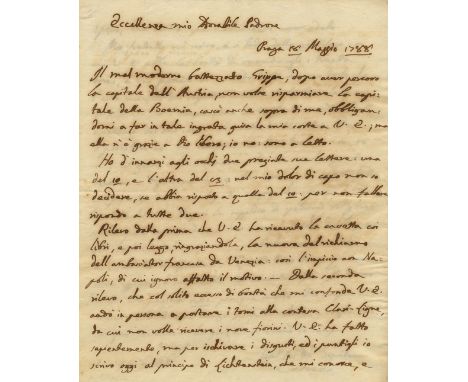 Eccellenza mio Adorabile Padrone
Praga 16 Maggio 1788
Il mal moderno battezzato Grippa, dopo aver percorso
la capitale dell'Austria non volle risparmiare la capi-
tale della Boemia, cascò anche sopra di me, obbligan-
domi a far in tale ingrata guisa la mia corte a V. E.; ma
ella n'è grazie a Dio libera; io no: sono a letto.
Ho d'innanzi agli occhj due preziate sue lettere: una
del 10, e l'altra del 13: nel mio dolor di capo non so
decidere, se abbia risposto a quella del 10: per non fallare
rispondo a tutte due.
Rilevo dalla prima che V. E. ha ricevuto la cassetta coi
libri, e poi leggo, ringraziandola, la nuova del richiamo
dell'ambasciator francese da Venezia: così l'impiccio con Na-
poli, di cui ignoro affatto il motivo. — Dalla seconda
rilevo, che col solito eccesso di bontà che mi confonde V. E.
andò in persona a portare i tomi alla contessa Clari-Ligne,
da cui non volle ricevere i nove fiorini. V. E. ha fatto
sapientemente, ma per ischivare i disgusti, ed i puntigli io
scrivo oggi al principe di Lichtenstein, che mi conosce, e